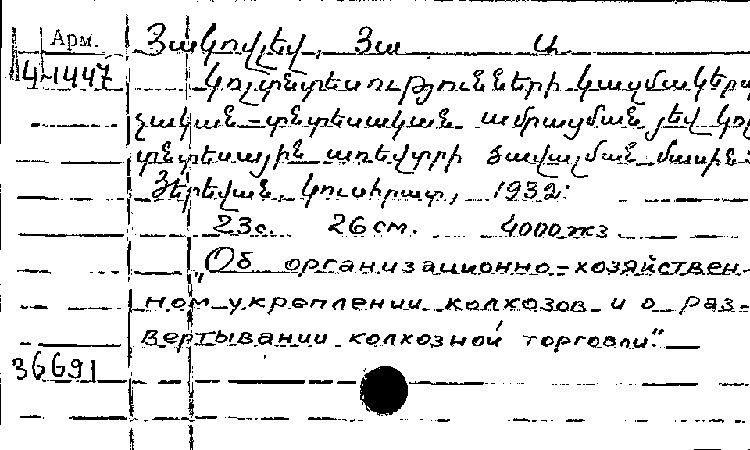 Арм.
4-1447
Յակովլեվ, Յա Ա.
Կոլտնտեսությունների կազմակերպ
չական-տնտեսական ամրացման յեվ կոլ
տնտեսային առևտրի ծավալման մասին:
Յերեվան, Կուսհրատ, 1932:
23с. 26 см. 4000 экз
„Об организационно-хозяйствен-
ном укреплении колхозов и о раз-
вертывании колхозной торговли".
36691